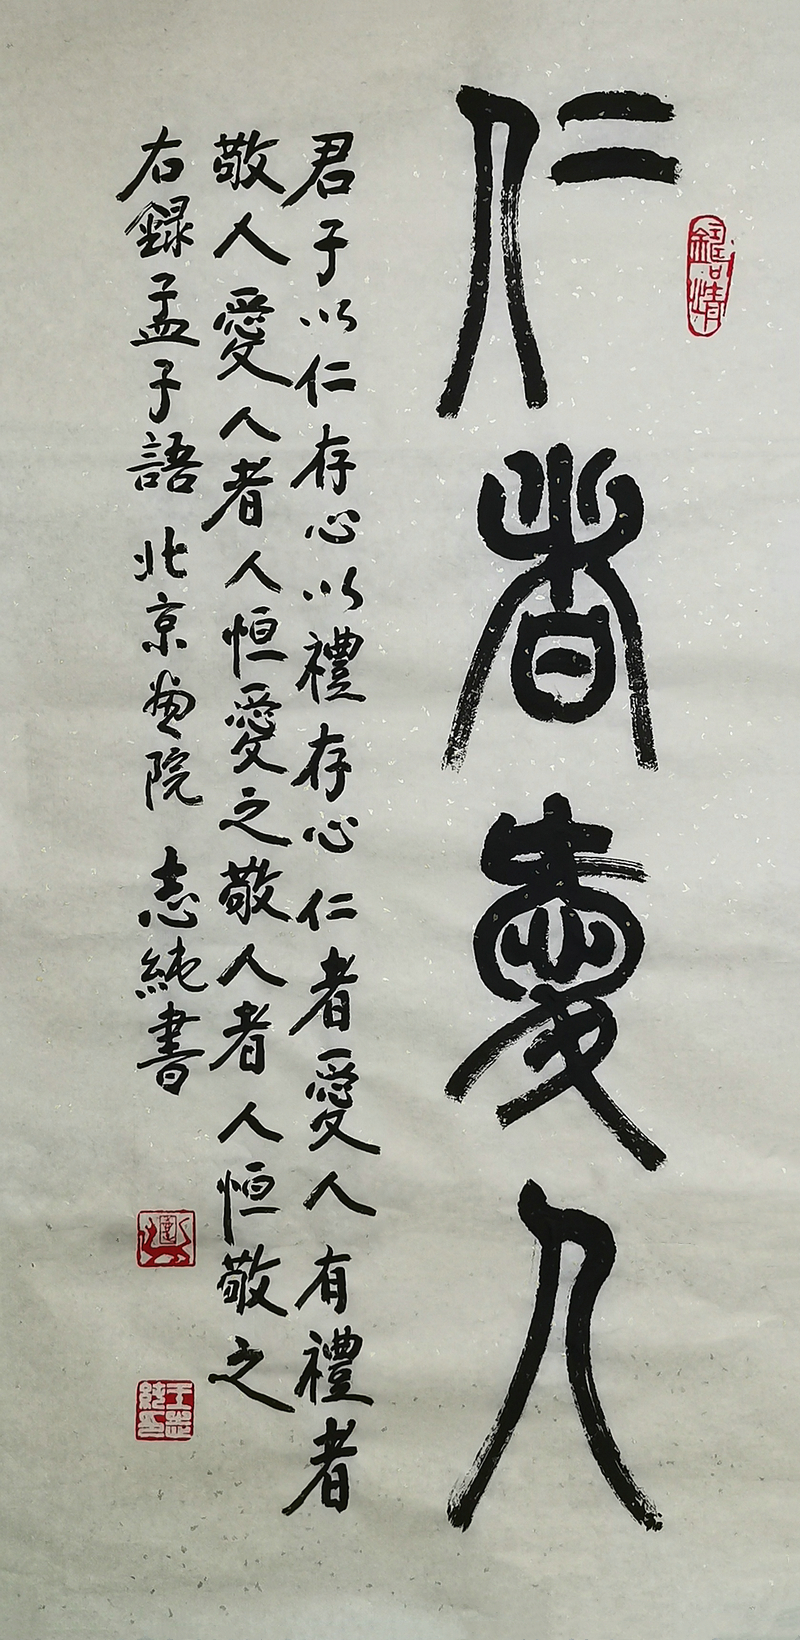 仁者愛人
君子以仁存心以禮存心仁者愛人有禮者
敬人愛人者人恒愛之敬人者人恒敬之
右録孟子語 北京畫院 志純書
王志純印